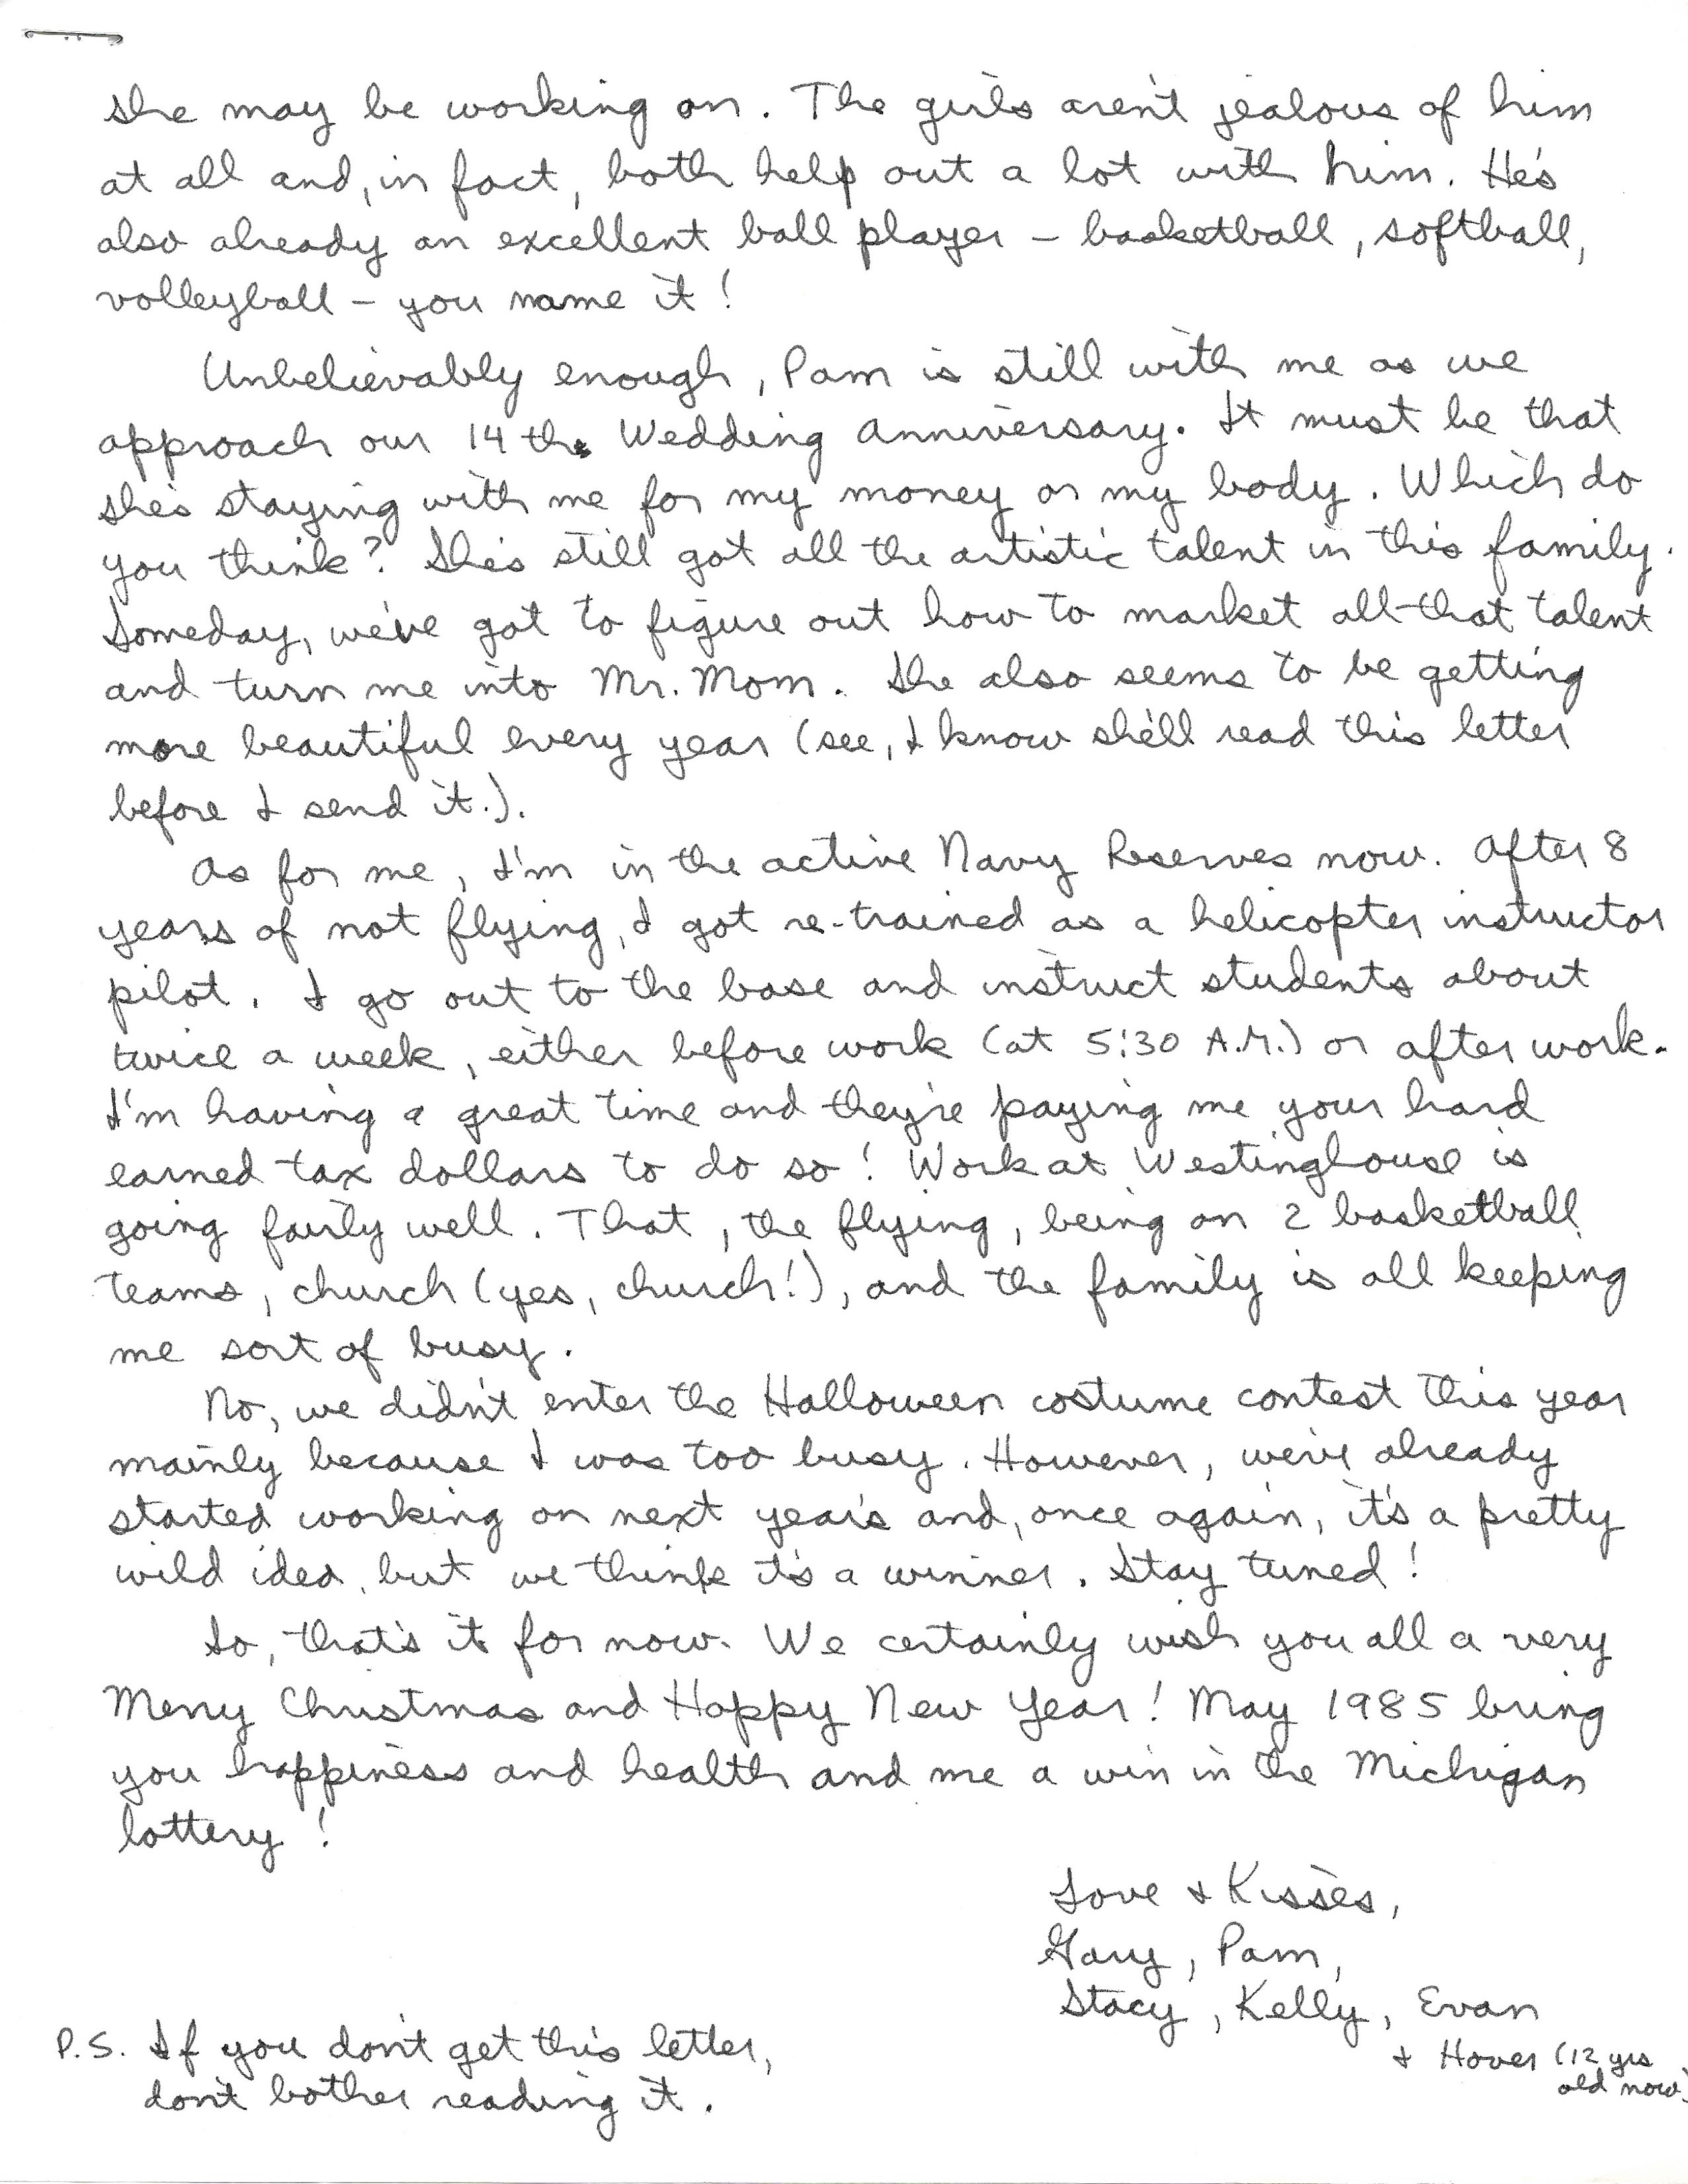 she may be working on. The girls aren't jealous of him
at all and, in fact, both help out a lot with him. He's
also already an excellent ball player - basketball, softball,
volleyball - you name it!
Unbelievably enough, Pam is still with me as we
approach our 14th Wedding anniversary. It must be that
she's staying with me for my money or my body. Which do
you think? She's still got all the artistic talent in this family.
Someday, we've got to figure out how to market all that talent
and turn me into Mr. Mom. She also seems to be getting
more beautiful every year (see, I know she'll read this letter
before I send it.).
As for me, I'm in the active Navy Reserves now. After 8
years of not flying, I got re-trained as a helicopter instructor
pilot. I go out to the base and instruct students about
twice a week, either before work (at 5:30 A.M.) or after work.
I'm having a great time and they're paying me your hard
earned tax dollars to do so! Work at Westinghouse is
going fairly well. That, the flying, being on 2 basketball
teams, church (yes, church!), and the family is all keeping
me sort of busy.
No, we didn't enter the Halloween costume contest this year
mainly because I was too busy. However, we've already
started working on next year's and, once again, it's a pretty
wild idea, but we think it's a winner. Stay tuned!
So, that's it for now. We certainly wish you all a very
Merry Christmas and Happy New Year! May 1985 bring
you happiness and health and me a win in the Michigan
lottery!
Love & Kisses,
Gary, Pam,
Stacy, Kelly, Evan
& Hover (12 yrs
old now)
P.S. If you don't get this letter,
don't bother reading it.